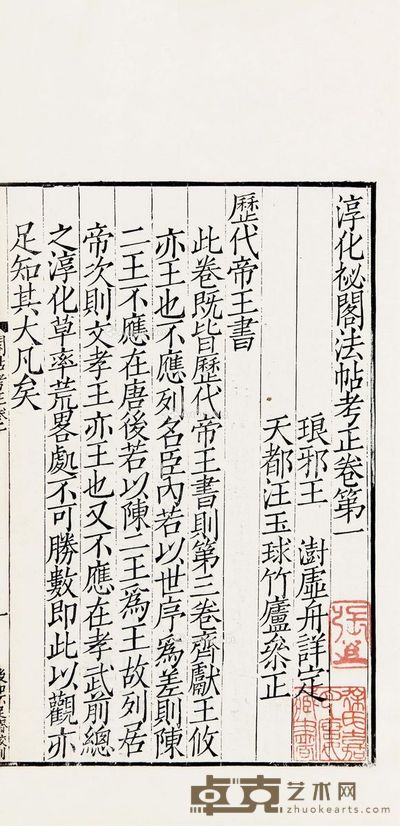 淳化祕閣法帖考正卷第一
琅邪王　澍虛舟詳定
天都汪玉球竹廬叅正
歷代帝王書
此卷既皆歷代帝王書則第三卷齊獻王攸
亦王也不應列名臣內若以世序爲差則陳
二王不應在唐後若以陳二王爲王故列居
帝次則文孝王亦王也又不應在孝武前總
之淳化草率荒畧處不可勝數即此以觀亦
足知其大凡矣
卓克艺术网
zhuokearts.com